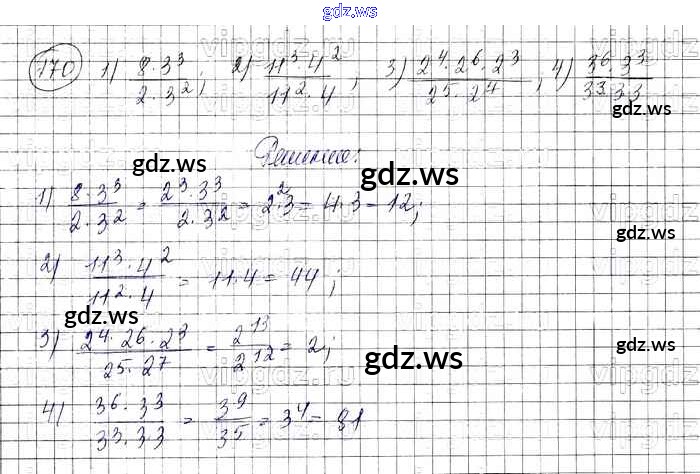 gdz.ws
170 1) 8·3³/2·3²; 2) 11³·4²/11²·4; 3) 2⁴·2⁶·2³/2⁵·2⁴; 4) 3⁶·3³/3³·33
gdz.ws
Решение:
gdz.ws gdz.ws
1) 8·3³/2·3² = 2³·3³/2·3² = 2²·3 = 4·3 = 12;
gdz.ws
2) 11³·4²/11²·4 = 11·4 = 44;
gdz.ws
3) 2⁴·2⁶·2³/2⁵·2⁷ = 2¹³/2¹² = 2;
gdz.ws gdz.ws
4) 3⁶·3³/3³·33 = 3⁹/3⁵ = 3⁴ = 81